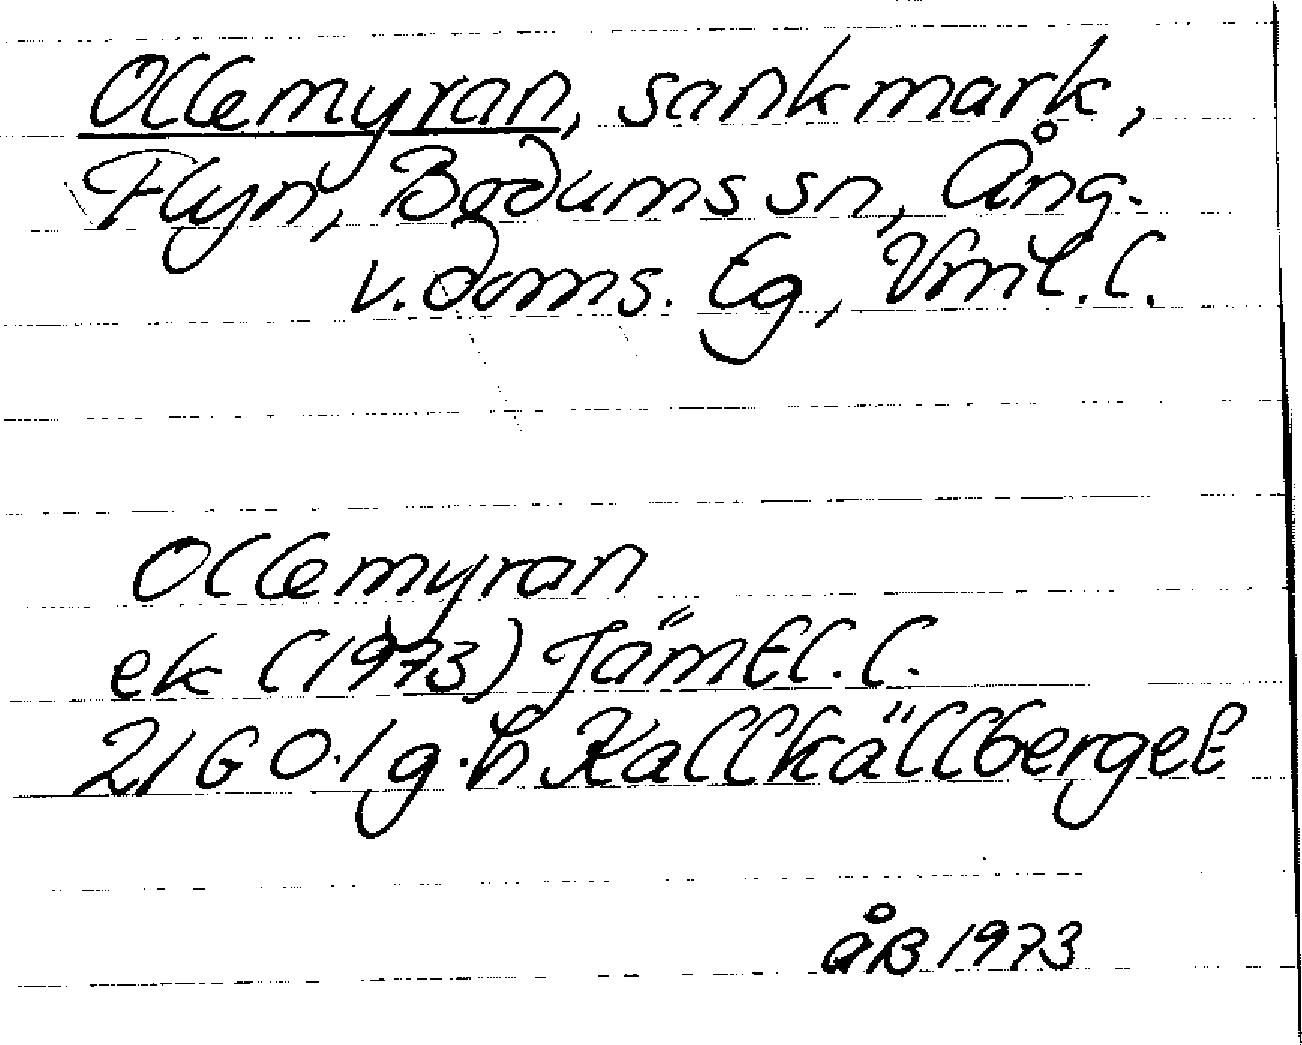 Ollemyran, sankmark,
Flyn, Bodums sn, Ång.
v. doms. Eg, Vml. l.
Ollemyran
ek (1973) Jämtl. l.
21G 0.1g.h. Kallkällberget
åB 1973